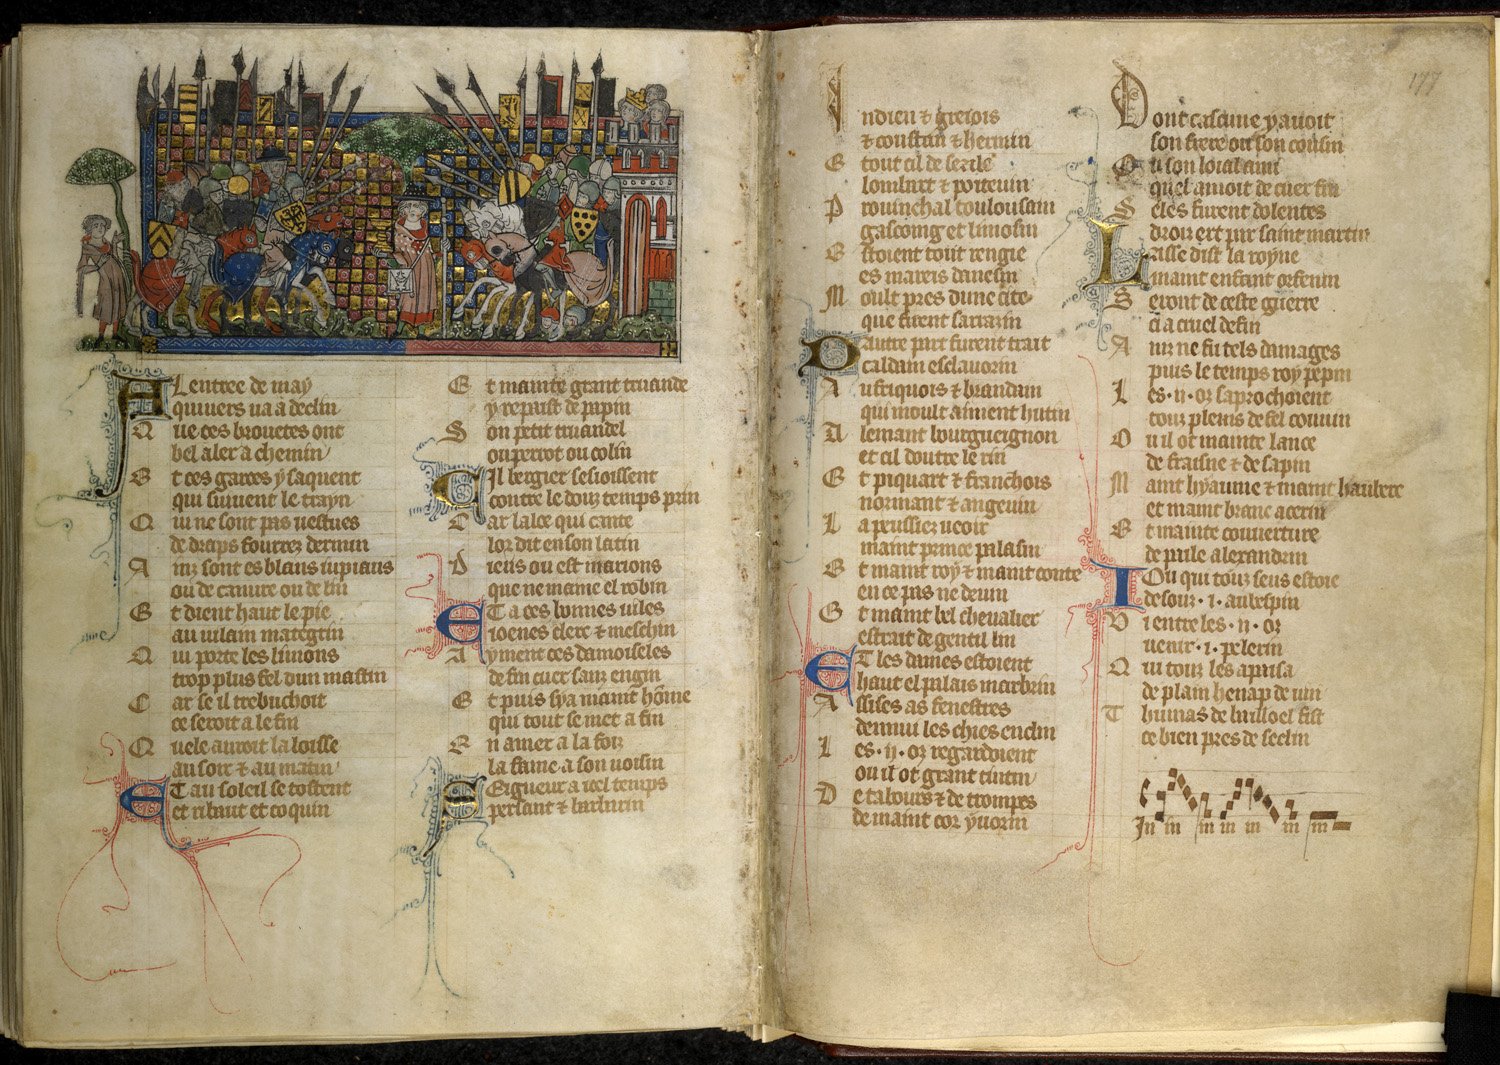 A Lentree de may
quiuers ua a declin
Q ue ces brouetes ont
bel aler a chemin
E t ces garces y saquent
qui suiuent le trayn
Q ui ne sont pas uestues
de draps fourrez dermin
A inz sont es blans iupiaus
ou de canure ou de lin
E t dient haut le pie
au uilain mategrin
Q ui porte les limons
trop plus fel dun mastin
C ar se il trebuchoit
ce seroit a le fin
Q uele auroit la loisse
au soir & au matin
E T au soleil se tostent
et ribaut et coquin
E t mainte grant truande
y repaist de papin
S on petit truandel
ou perrot ou colin
C Il bergier sesioissent
contre le douz temps prin
C ar laloe qui cante
lor dit en son latin
D ieus ou est marions
que ne maine el robin
E T a ces bonnes uiles
ioenes clerc & meschin
A yment ces damoiseles
de fin cuer sanz engin
E t puis sya maint home
qui tout se met a fin
E n amer a la foiz
la fame a son uoisin
S Eigneur a itel temps
persant & barbarin
I ndien & grejois
& coustan & hermin
E tout cil de sezile
lombart & poiteuin
P rouinchal toulousain
gascoing et limosin
E stoient tout rengie
es mareis dauesin
M oult pres dune cite
que tirent sarrazin
D autre part furent trait
caldain esclauorin
A ufriquois & brandain
qui moult aiment hutin
A lemant bourgueignon
et cil doutre le rin
E t piquart & franchois
normant & angeuin
L a peussiez ueoir
maint prince palasin
E t maint roy & maint conte
en ce pas ne deuin
E t maint bel cheualier
estrait de gentil lin
E T les dames estoient
haut el palais marbrin
A ssises as fenestres
dennui les chies enclin
L es .ij. oz regardoient
ou il ot grant tintin
D e tabours & de trompes
de maint cor yuorin
177
D ont cascune y auoit
son frere ou son cousin
O u son loial ami
quel amoit de cuer fin
S eles furent dolentes
droiz ert par saint martin
L asse dist la royne
maint enfant orfenin
S eront de ceste guerre
ci a cruel defin
A inz ne fu tels damages
puis le temps roy pepin
L es .ij. oz saprochoient
touz plenis de fel couuin
O u il ot mainte lance
de fraisne & de sapin
M aint hyaume & maint hauberc
et maint branc acerin
E t mainte couuerture
de paile alexandrin
I Ou qui touz seus estoie
desouz .i. aubespin
V i entre les .ij. oz
uenir .i. pelerin
Q ui touz les apaisa
de plain henap de uin
T humas de bailloel fist
ce bien pres de seclin
In in in in in in in